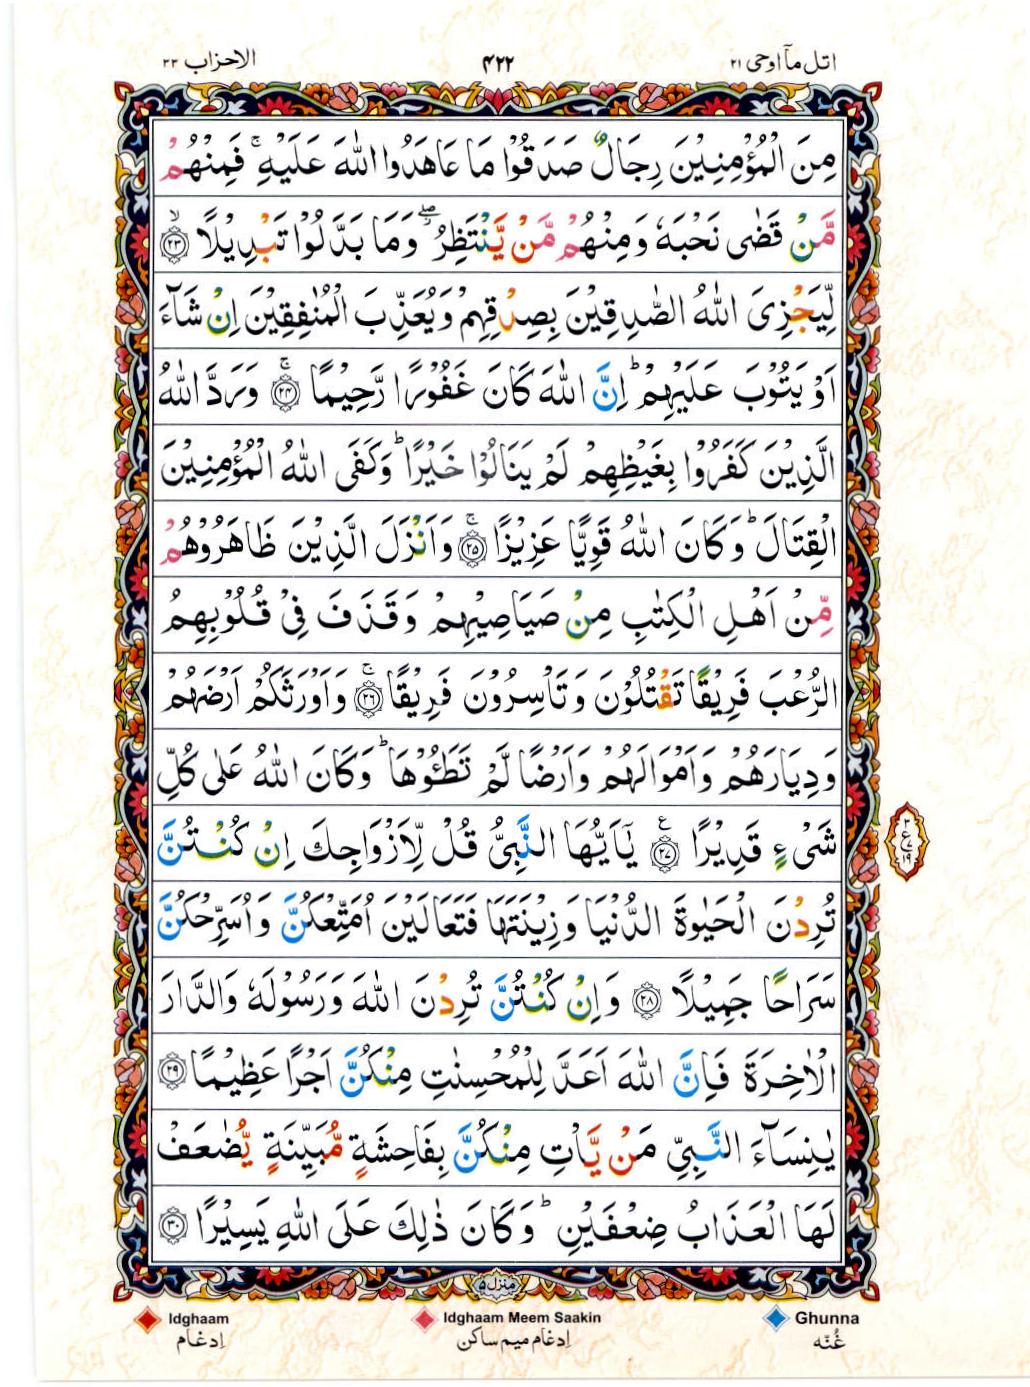 اتل مآ اوحی ۲۱
۴۲۲
الاحزاب ۳۳
مِنَ الْمُؤْمِنِيْنَ رِجَالٌ صَدَقُوْا مَا عَاهَدُوا اللّٰهَ عَلَيْهِ ۚ فَمِنْهُمْ
مَّنْ قَضٰى نَحْبَهٗ وَمِنْهُمْ مَّنْ يَّنْتَظِرُ ۖ وَمَا بَدَّلُوْا تَبْدِيْلًا ۙ‏﴿۲۳﴾
لِّيَجْزِىَ اللّٰهُ الصّٰدِقِيْنَ بِصِدْقِهِمْ وَيُعَذِّبَ الْمُنٰفِقِيْنَ اِنْ شَآءَ
اَوْ يَتُوْبَ عَلَيْهِمْ ؕ اِنَّ اللّٰهَ كَانَ غَفُوْرًا رَّحِيْمًا ۚ‏﴿۲۴﴾ وَرَدَّ اللّٰهُ
الَّذِيْنَ كَفَرُوْا بِغَيْظِهِمْ لَمْ يَنَالُوْا خَيْرًا ؕ وَكَفَى اللّٰهُ الْمُؤْمِنِيْنَ
الْقِتَالَ ؕ وَكَانَ اللّٰهُ قَوِيًّا عَزِيْزًا ۚ‏﴿۲۵﴾ وَاَنْزَلَ الَّذِيْنَ ظَاهَرُوْهُمْ
مِّنْ اَهْلِ الْكِتٰبِ مِنْ صَيَاصِيْهِمْ وَقَذَفَ فِىْ قُلُوْبِهِمُ
الرُّعْبَ فَرِيْقًا تَقْتُلُوْنَ وَتَاْسِرُوْنَ فَرِيْقًا ۚ‏﴿۲۶﴾ وَاَوْرَثَكُمْ اَرْضَهُمْ
وَدِيَارَهُمْ وَاَمْوَالَهُمْ وَاَرْضًا لَّمْ تَطَـُٔوْهَا ؕ وَكَانَ اللّٰهُ عَلٰى كُلِّ
شَىْءٍ قَدِيْرًا ‏﴿۲۷﴾ ع يٰۤاَيُّهَا النَّبِىُّ قُلْ لِّاَزْوَاجِكَ اِنْ كُنْتُنَّ
تُرِدْنَ الْحَيٰوةَ الدُّنْيَا وَزِيْنَتَهَا فَتَعَالَيْنَ اُمَتِّعْكُنَّ وَاُسَرِّحْكُنَّ
سَرَاحًا جَمِيْلًا ‏﴿۲۸﴾ وَاِنْ كُنْتُنَّ تُرِدْنَ اللّٰهَ وَرَسُوْلَهٗ وَالدَّارَ
الْاٰخِرَةَ فَاِنَّ اللّٰهَ اَعَدَّ لِلْمُحْسِنٰتِ مِنْكُنَّ اَجْرًا عَظِيْمًا ‏﴿۲۹﴾
يٰنِسَآءَ النَّبِىِّ مَنْ يَّاْتِ مِنْكُنَّ بِفَاحِشَةٍ مُّبَيِّنَةٍ يُّضٰعَفْ
لَهَا الْعَذَابُ ضِعْفَيْنِ ؕ وَكَانَ ذٰلِكَ عَلَى اللّٰهِ يَسِيْرًا ‏﴿۳۰﴾
۳
ع ۷
۱۹
منزل ۵
Idghaam
اِدغام
Idghaam Meem Saakin
اِدغام میم ساکن
Ghunna
غُنّه